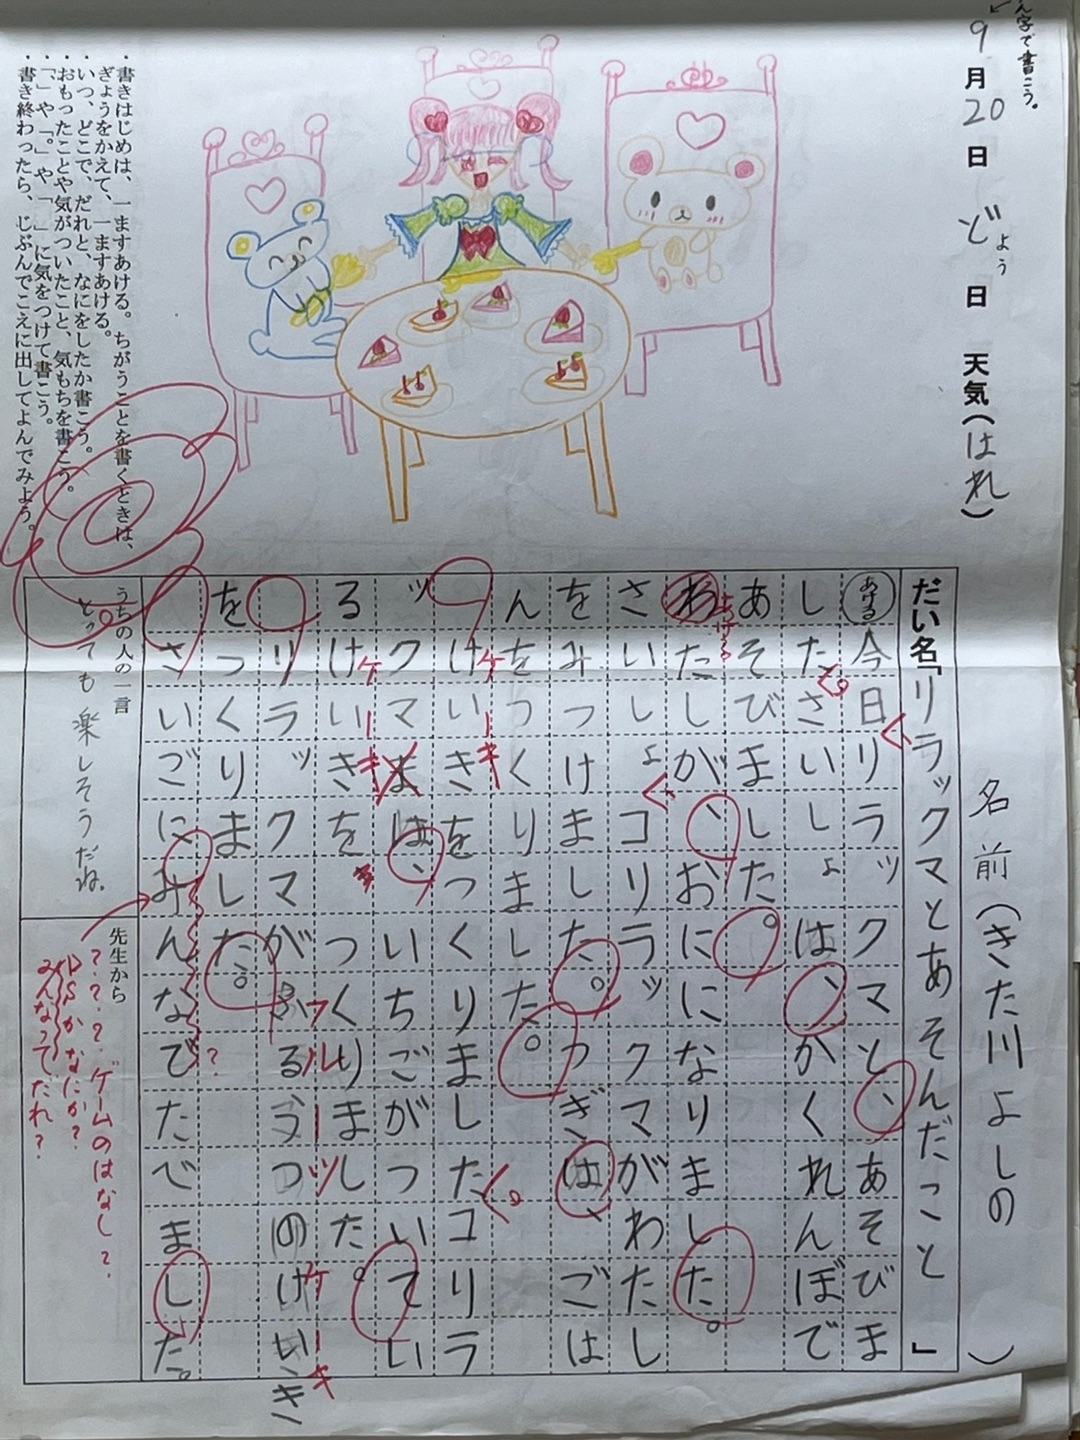 ん字で書こう。
9月20日 どょう日 天気(はれ)
名前(きた川よしの)
だい名「リラックマとあそんだこと」
あける今日リラックマと、あそびま
したさいしょは、かくれんぼで
あそびました。
わたしが、おにになりました。
さいしょコリラックマがわたし
をみつけました。つぎは、ごは
んをつくりました。
けいきをつくりましたコリラ
ックマまは、いちごがついてい
るけいきをつくりました。
リラックマがふるうつのけいき
をつくりました。
さいごにみんなでたべました。
ケーキ
ケーキ
フルーツ
ケーキ
うちの人の一言
とっても楽しそうだね。
先生から
???ゲームのはなし?
DSかなにか?
みんなってだれ?
・書きはじめは、一ますあける。ちがうことを書くときは、
ぎょうをかえて、一ますあける。
・いつ、どこで、だれと、なにをしたか書こう。
・おもったことや気がついたこと、気もちを書こう。
・「」や「。」や「、」に気をつけて書こう。
・書き終わったら、じぶんでこえに出してよんでみよう。